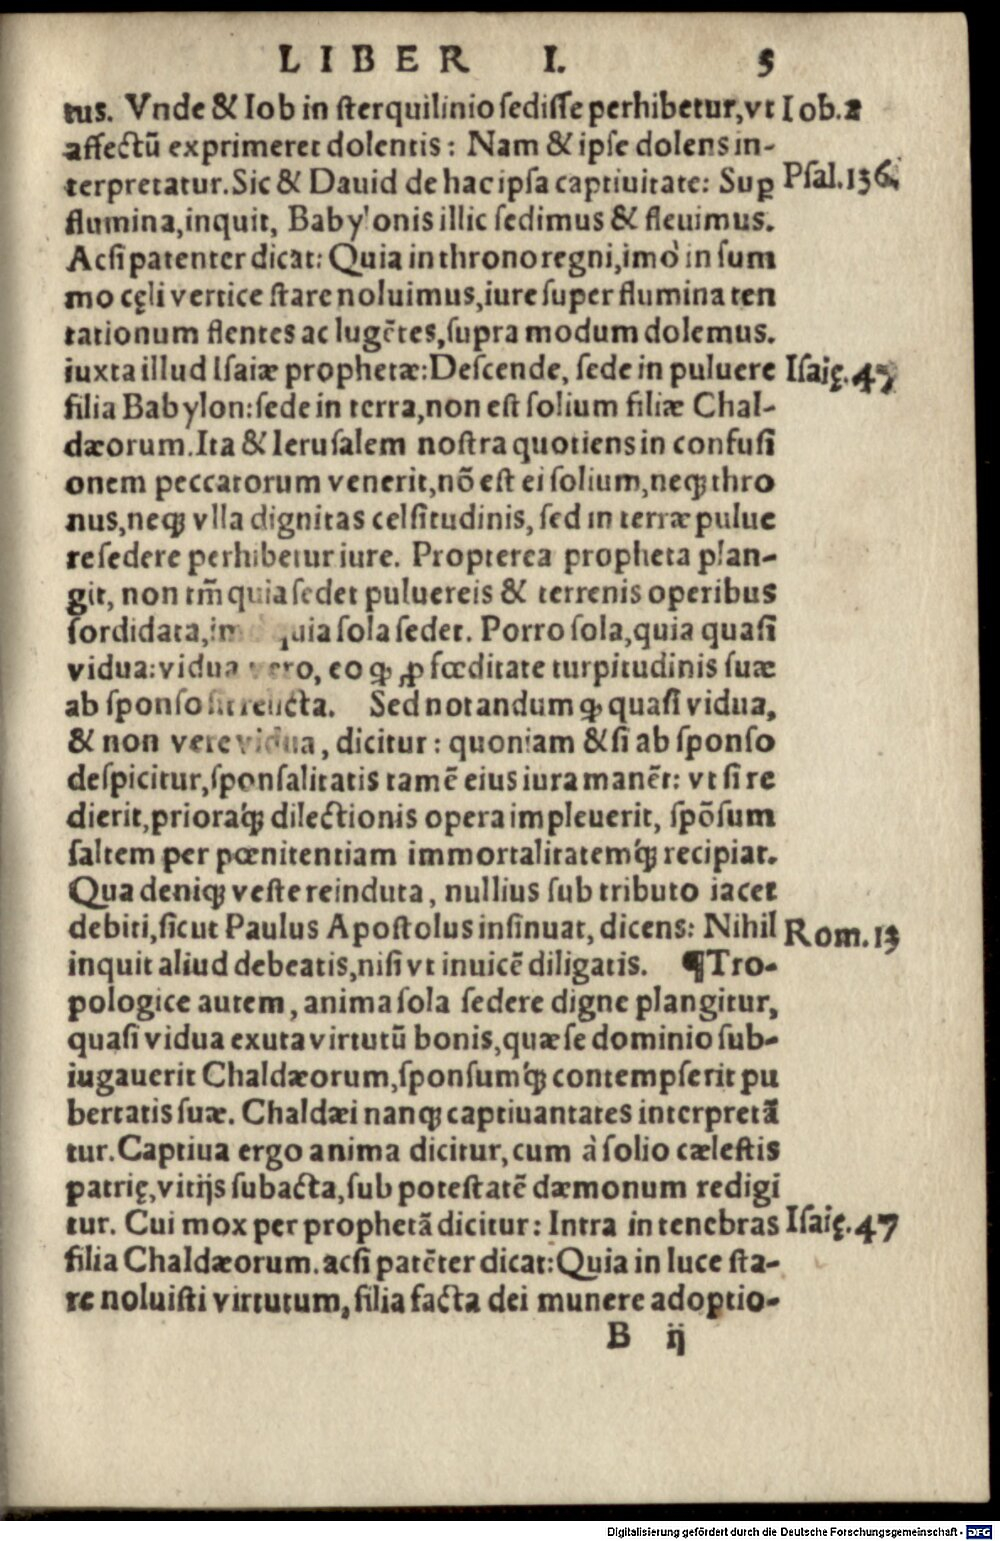 LIBER I. 5
tus. Vnde & Iob in sterquilinio sedisse perhibetur, vt Iob.2
affectū exprimeret dolentis: Nam & ipse dolens in-
terpretatur. Sic & Dauid de hac ipsa captiuitate: Suꝑ Psal.136.
flumina, inquit, Babylonis illic sedimus & fleuimus.
Acsi patenter dicat: Quia in throno regni, imò in sum
mo cęli vertice stare noluimus, iure super flumina ten
tationum flentes ac lugētes, supra modum dolemus.
iuxta illud Isaiæ prophetæ: Descende, sede in puluere Isaię.47
filia Babylon: sede in terra, non est solium filiæ Chal-
dæorum. Ita & Ierusalem nostra quotiens in confusi
onem peccatorum venerit, nō est ei solium, neq; thro
nus, neq; vlla dignitas celsitudinis, sed in terræ pulue
re sedere perhibetur iure. Propterea propheta plan-
git, non tm̄ quia sedet puluereis & terrenis operibus
sordidata, quia sola sedet. Porro sola, quia quasi
vidua: vidua vero, eo ꝙ ꝓ fœditate turpitudinis suæ
ab sponso sit relicta. Sed notandum ꝙ quasi vidua,
& non vere vidua, dicitur: quoniam & si ab sponso
despicitur, sponsalitatis tamē eius iura manēt: vt si re
dierit, prioraq́; dilectionis opera impleuerit, spōsum
saltem per pœnitentiam immortalitatemq́; recipiat.
Qua deniq; veste reinduta, nullius sub tributo iacet
debiti, sicut Paulus Apostolus insinuat, dicens: Nihil Rom.13
inquit aliud debeatis, nisi vt inuicē diligatis. ¶Tro-
pologice autem, anima sola sedere digne plangitur,
quasi vidua exuta virtutū bonis, quæ se dominio sub-
iugauerit Chaldæorum, sponsumq́; contempserit pu
bertatis suæ. Chaldæi nanq; captiuantates interpretā
tur. Captiua ergo anima dicitur, cum à solio cælestis
patrię, vitijs subacta, sub potestatē dæmonum redigi
tur. Cui mox per prophetā dicitur: Intra in tenebras Isaię.47
filia Chaldæorum. acsi patēter dicat: Quia in luce sta-
re noluisti virtutum, filia facta dei munere adoptio-
B ij
Digitalisierung gefördert durch die Deutsche Forschungsgemeinschaft - DFG